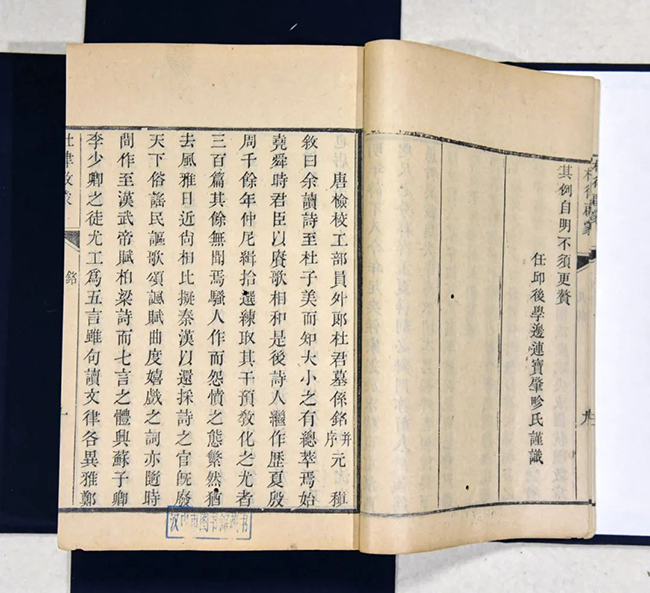 其例自明不須更贅
任邱後學邊連寶肇畛氏謹識
唐檢校工部員外郎杜君墓係銘并序 元稹
敘曰余讀詩至杜子美而知大小之有總萃焉始
堯舜時君臣以賡歌相和是後詩人繼作歷夏殷
周千餘年仲尼緝拾選練取其干預教化之尤者
三百篇其餘無聞焉騷人作而怨憤之態繁然猶
去風雅日近尚相比擬秦漢以還採詩之官旣廢
天下俗謠民謳歌頌諷賦曲度嬉戲之詞亦隨時
間作至漢武帝賦柏梁詩而七言之體興蘇子卿
李少卿之徒尤工爲五言雖句讀文律各異雅鄭
杜律啟蒙
銘
一